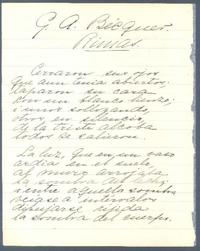 G. A. Bécquer.
Rimas.
Cerraron sus ojos
que aun tenia abiertos;
taparon su cara
con un blanco lienzo;
i unos sollozando
otros en silencio,
de la triste alcoba
todos se salieron.
La luz, que en un vaso
ardia en el suelo,
al muro arrojaba
la sombra del lecho;
i entre aquella sombra
veiase a intervalos
dibujarse rijida
la sombra del cuerpo.